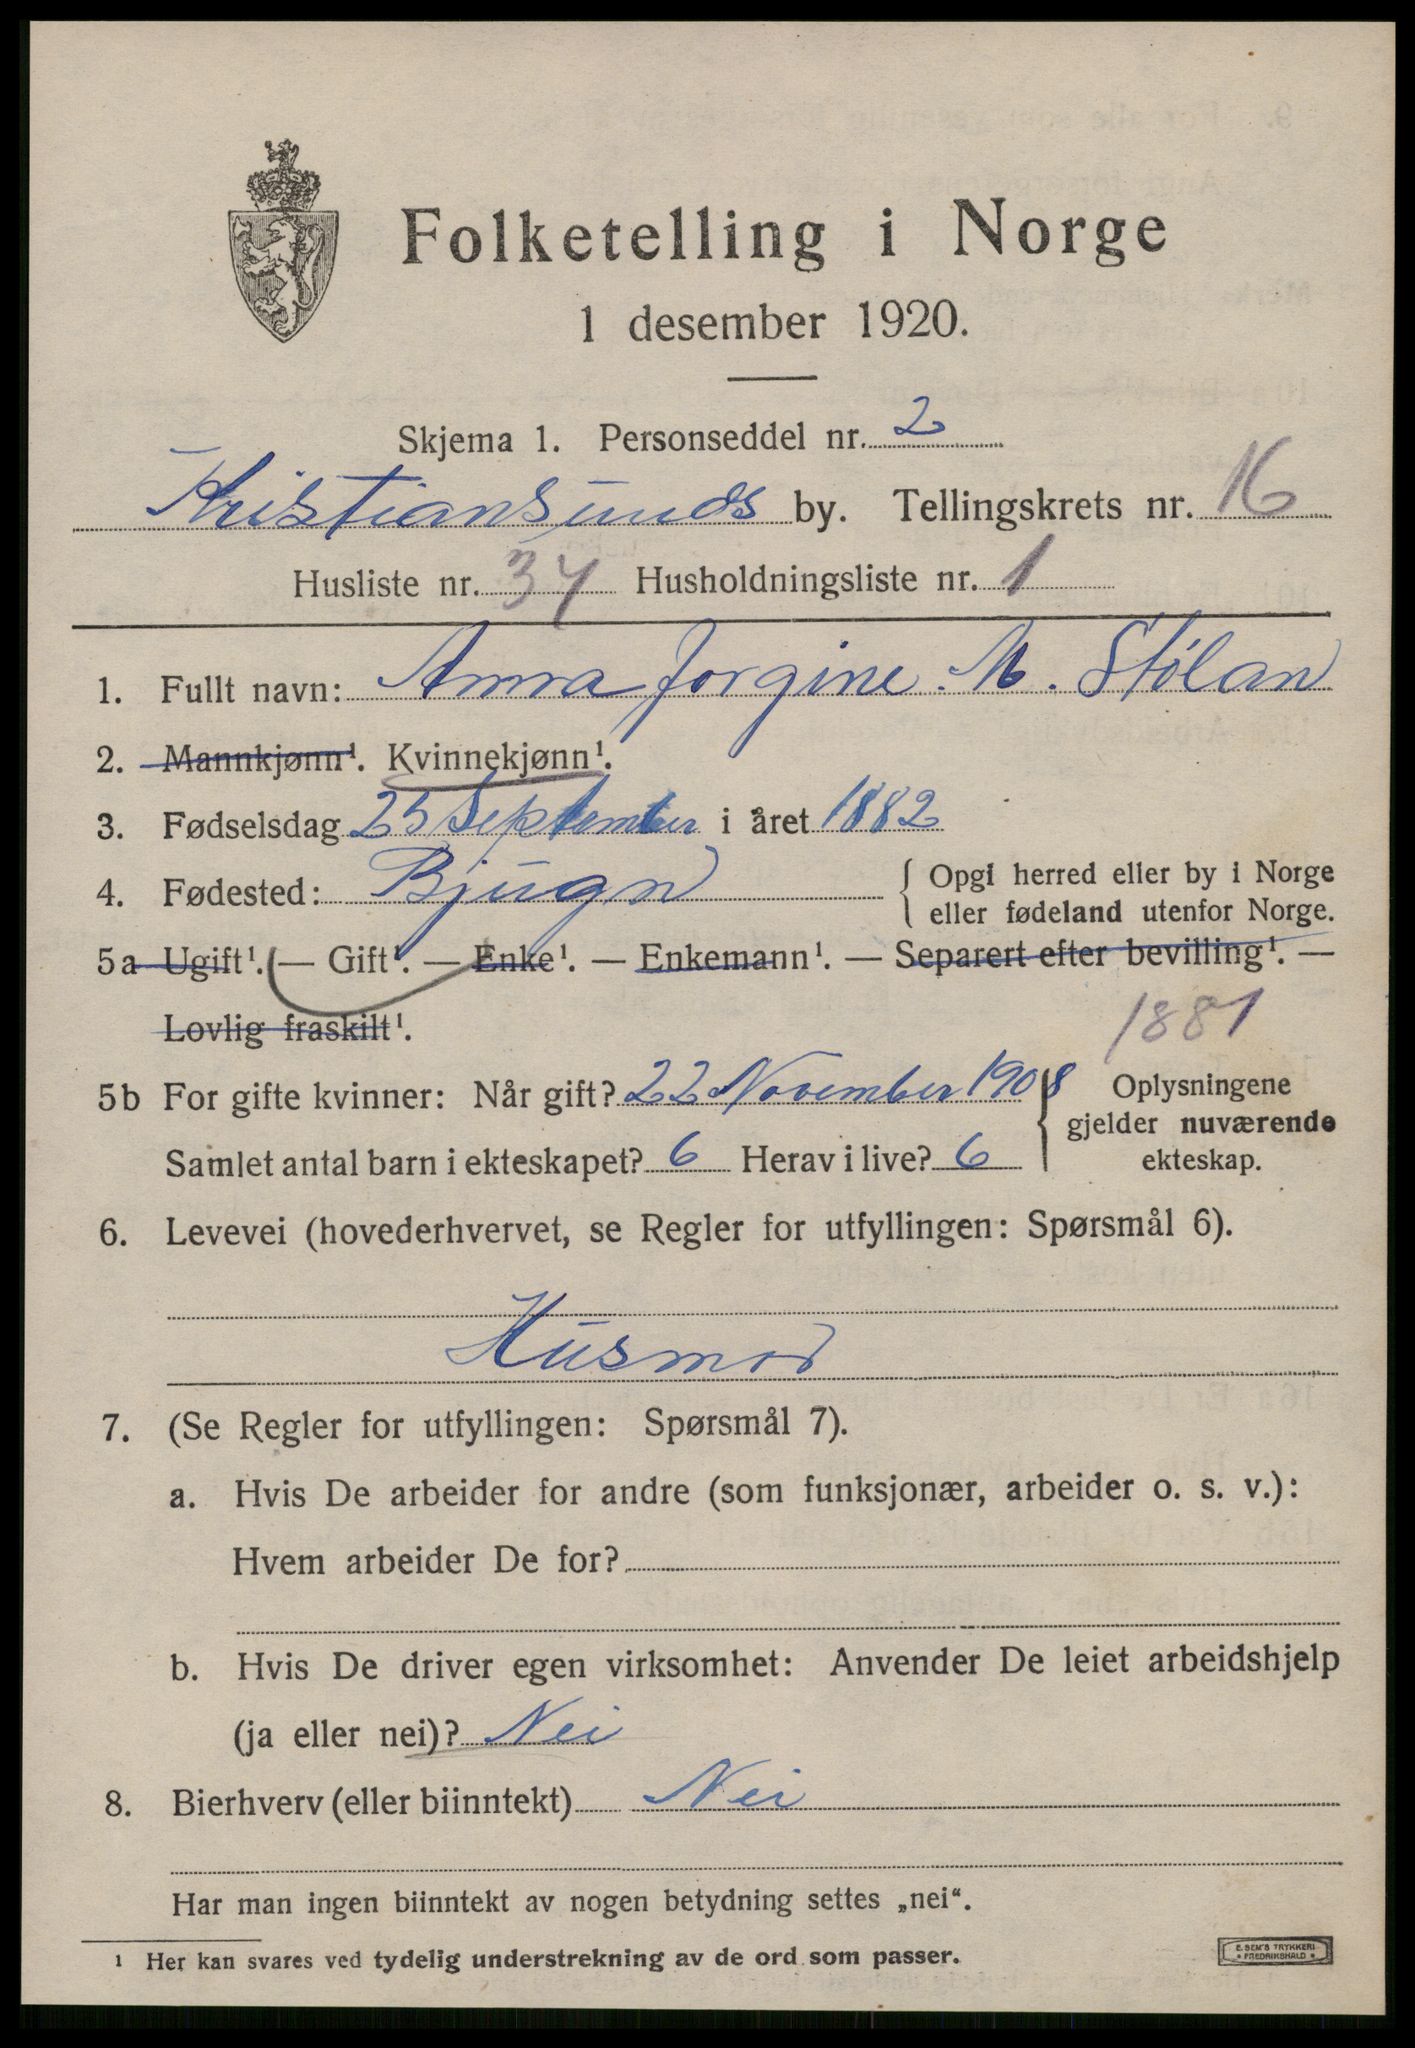 Folketelling i Norge
1 desember 1920.
Skjema 1. Personseddel nr. 2
Kristiansunds by. Tellingskrets nr. 16
Husliste nr. 34 Husholdningsliste nr. 1
1. Fullt navn: Anna Jorgine M. Stølan
2. Mannkjønn¹. Kvinnekjønn¹.
3. Fødselsdag 25 September i året 1882
4. Fødested: Bjugn { Opgi herred eller by i Norge
eller fødeland utenfor Norge.
5a Ugift¹. — Gift¹. — Enke¹. — Enkemann¹. — Separert efter bevilling¹. —
Lovlig fraskilt¹.
1881
5b For gifte kvinner: Når gift? 22 November 1908 { Oplysningene
gjelder nuværende
Samlet antal barn i ekteskapet? 6 Herav i live? 6 ekteskap.
6. Levevei (hovederhvervet, se Regler for utfyllingen: Spørsmål 6).
Husmor
7. (Se Regler for utfyllingen: Spørsmål 7).
a. Hvis De arbeider for andre (som funksjonær, arbeider o. s. v.):
Hvem arbeider De for?
b. Hvis De driver egen virksomhet: Anvender De leiet arbeidshjelp
(ja eller nei)? Nei
8. Bierhverv (eller biinntekt) Nei
Har man ingen biinntekt av nogen betydning settes „nei“.
¹ Her kan svares ved tydelig understrekning av de ord som passer.
E. SEM'S TRYKKERI
• FREDRIKSHALD •